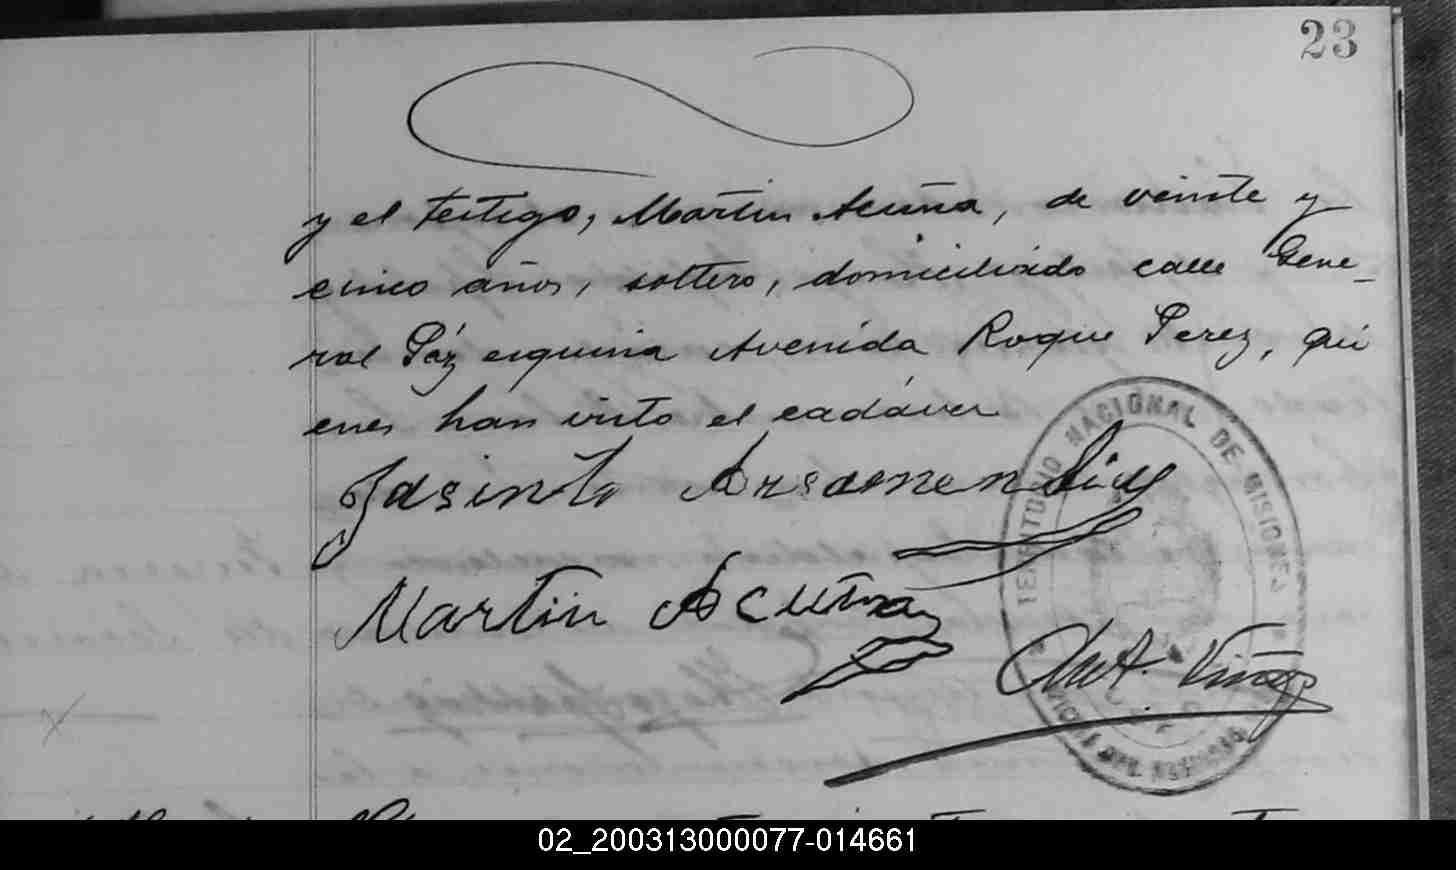 23
y el testigo, Martin Acuña, de veinte y
cinco años, soltero, domiciliado calle Gene_
ral Páz esquina Avenida Roque Perez, qui
enes han visto el cadáver
Jasinto
Martin Acuña
TERRITORIO NACIONAL DE MISIONES
02_200313000077-014661